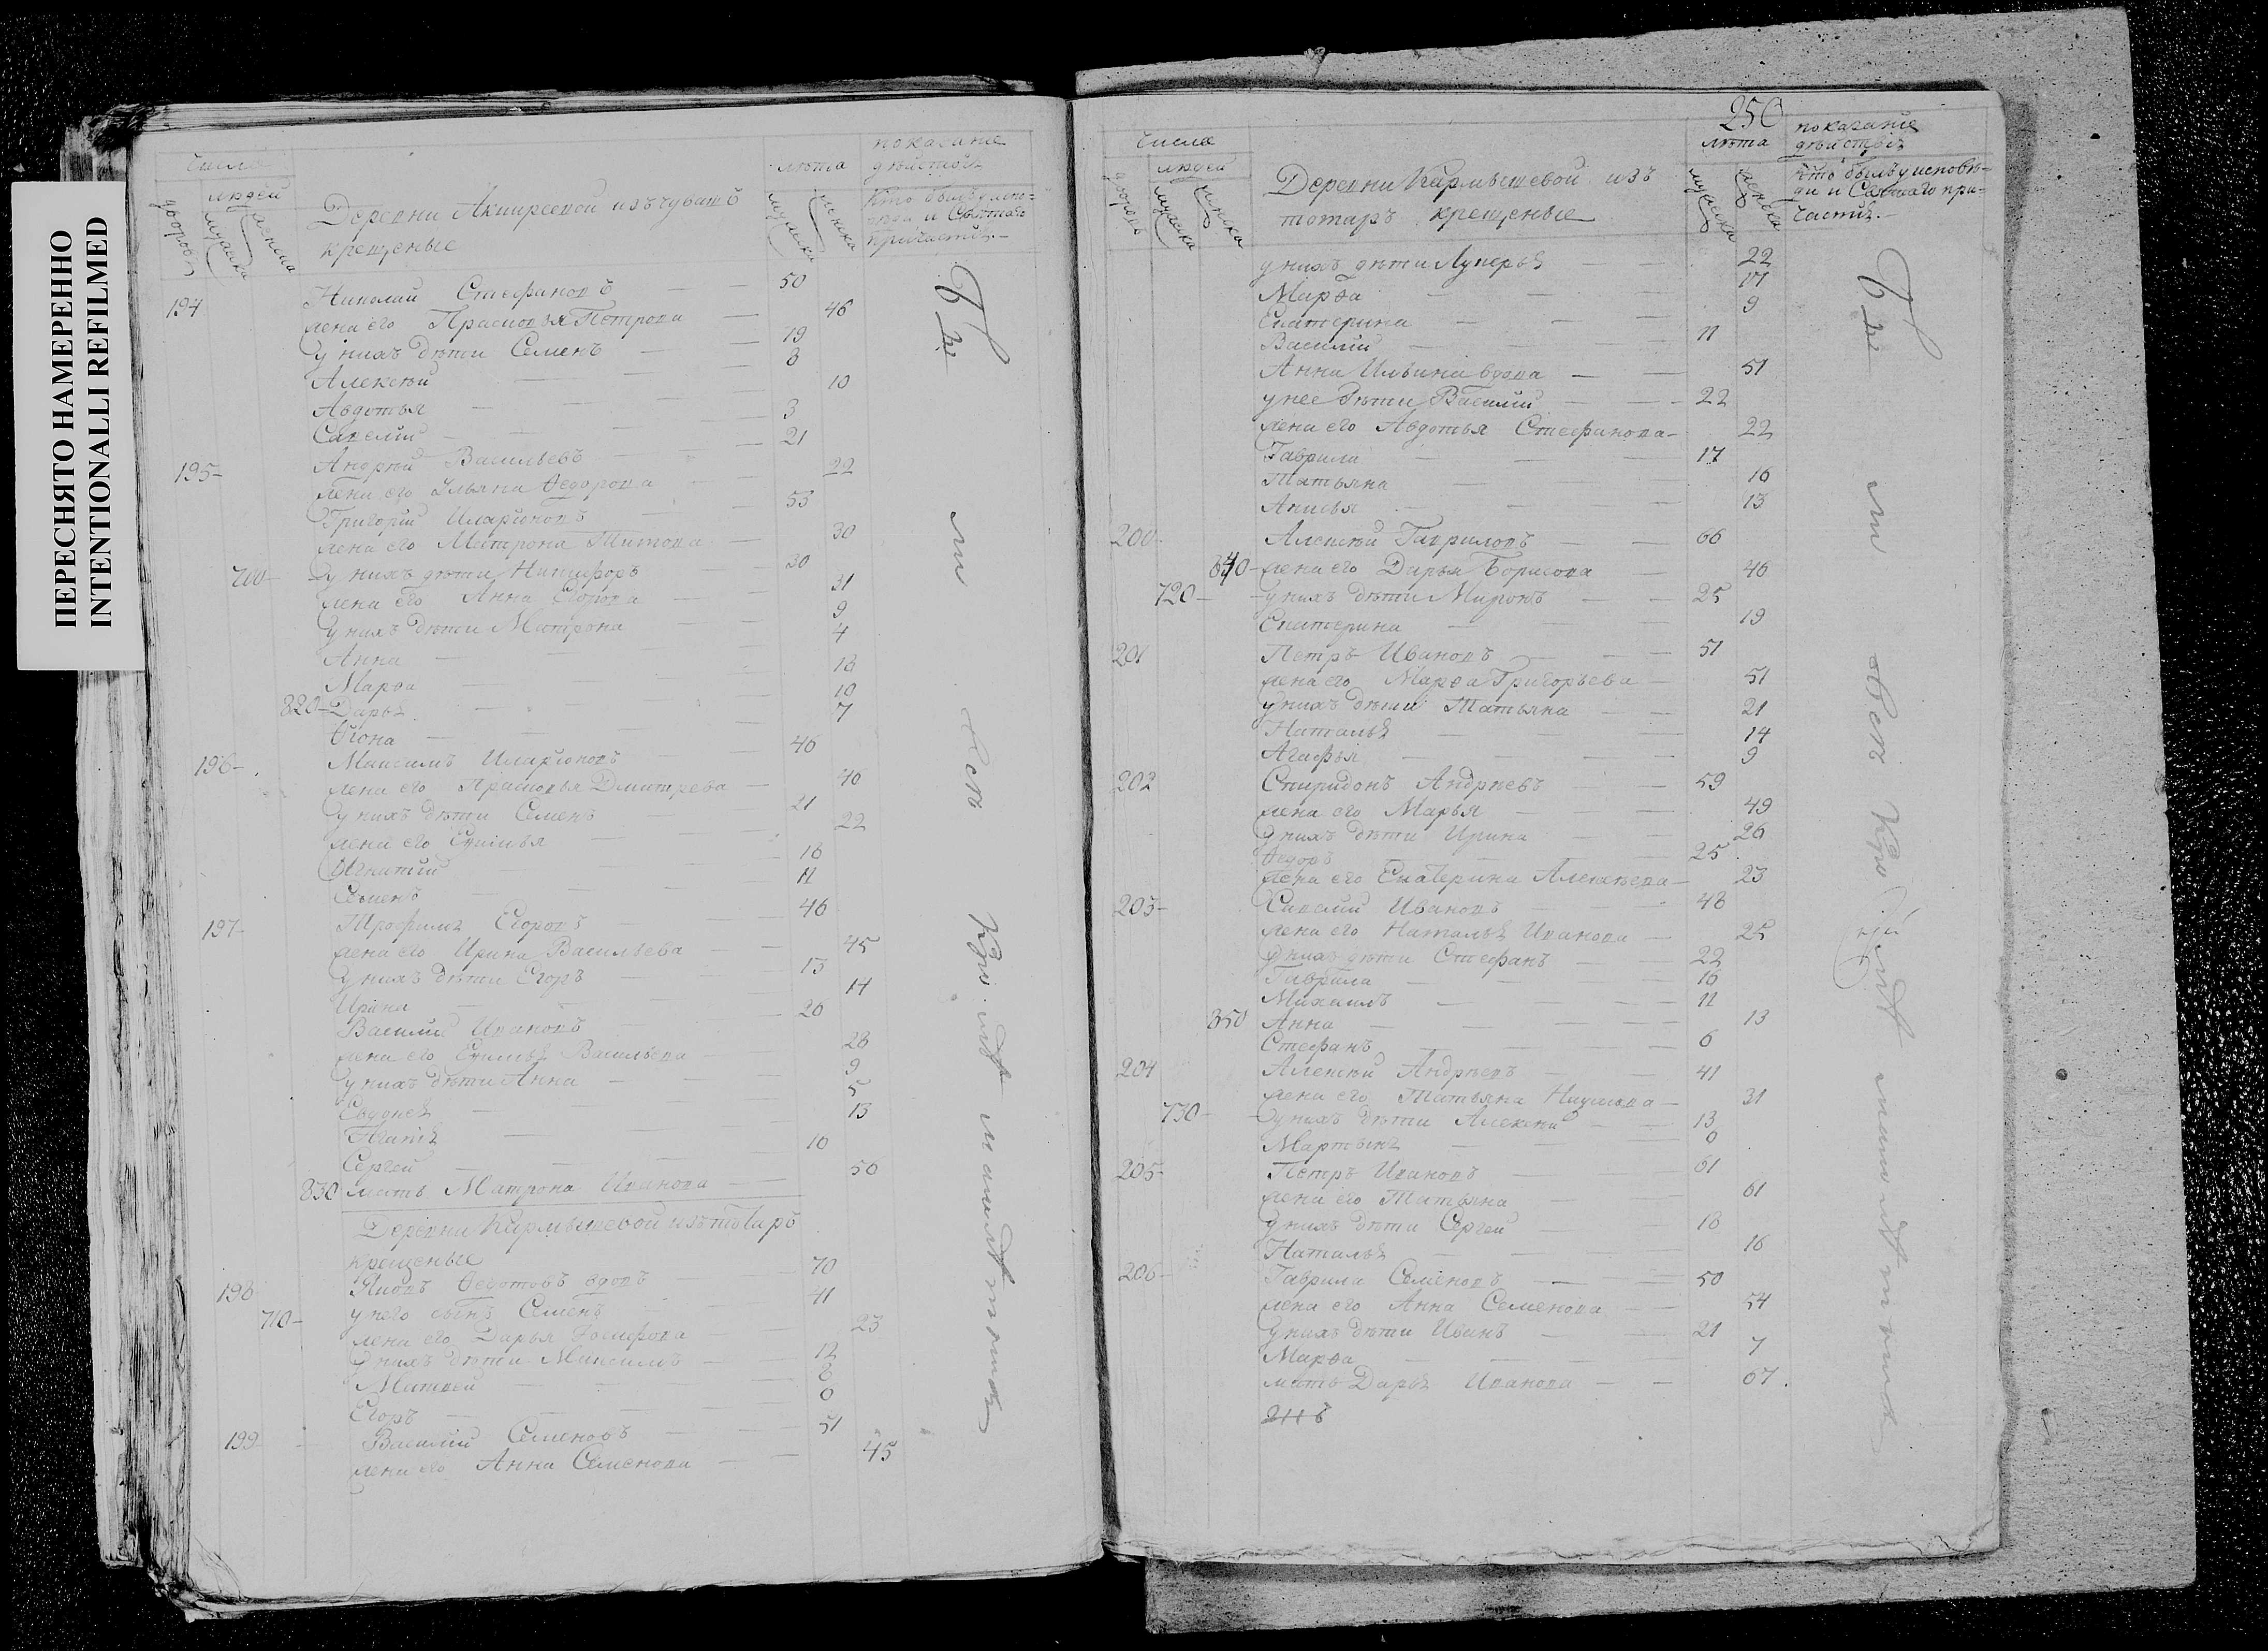 ПЕРЕСНЯТО НАМЕРЕННО
INTENTIONALLI REFILMED
числа
лѣта
показанїе
дѣйствъ
дворовъ
людей
мужска
женска
Деревни Акииреевой изъ чувашъ
крещеные
мужска
женска
Кто былъ у испо-
и Святаго
причастїя.–
194
Николай Стефановъ — — 50
жена его Прасковья Петрова — 46
у нихъ дѣти Семенъ — 19
Алексѣй — 3
Авдотья — 10
Савелий — 3
195- Андрѣй Васильевъ — 21
жена его Ульяна Ѳедорова — 22
Григорий Иларионовъ — 53
жена его Матрона Титова — 30
700- у нихъ дѣти Никифоръ — 30
жена его Анна Егорова — 31
у нихъ дѣти Матрона — 9
Анна — 4
Марѳа — 16
820- Дарья — 10
7
196- Максимъ Иларионовъ — 46
жена его Прасковья Дмитрева — 40
у нихъ дѣти Семенъ — 21
жена его — 22
Игнатий — 16
Семенъ — 11
197- Трофимъ Егоровъ — 46
жена его Ирина Васильева — 45
у нихъ дѣти Егоръ — 13
Ирина — 14
Василий Ивановъ — 26
жена его Васильева — 28
у нихъ дѣти Анна — 9
5
13
Сергей — 10
830 мать Матрона Иванова — 50
Деревни Кармышевой изъ татаръ
крещеные
198 Ѳедотовъ вдовъ — 70
710- у него сынъ Семенъ — 41
жена его Дарья — 23
у нихъ дѣти Максимъ — 12
Матвей — 6
Егоръ — 0
199 Василий Семеновъ — 51
жена его Анна Семенова — 45
Бы ли всѣ
250
числа
лѣта
показанїе
дѣйствъ
дворовъ
людей
мужска
женска
Деревни Кармышевой изъ
тотаръ крещеные
мужска
женска
Кто былъ у исповѣ-
ди и Святаго при-
частїя.–
у нихъ дѣти Лукерья — 22
Марѳа — 17
Екатерина — 9
Василий — 11
Анна Ильина вдова — 51
у нее дѣти Василий — 22
жена его Авдотья Стефанова — 22
Гаврила — 17
Татьяна — 16
Анисья — 13
200- Алексѣй Гавриловъ — 66
840- жена его Дарья Борисова — 46
720- у нихъ дѣти Миронъ — 25
Екатерина — 19
201 Петръ Ивановъ — 51
жена его Марѳа Григорьева — 51
у нихъ дѣти Татьяна — 21
Наталья — 14
Агафья — 9
202 Спиридонъ Андрѣевъ — 59
жена его Марья — 49
у нихъ дѣти Ирина — 26
Ѳедоръ — 25
жена его Екатерина Алексѣева — 23
203- Савелий Ивановъ — 48
жена его Наталья Иванова — 25
у нихъ дѣти Стефанъ — 22
Гаврила — 16
Михаилъ — 11
850 Анна — 13
Стефанъ — 6
204 Алексѣй Андрѣевъ — 41
жена его Татьяна Наумова — 31
730- у нихъ дѣти Алексѣй — 13
Мартынъ — 0
205- Петръ Ивановъ — 61
жена его Татьяна — 61
у нихъ дѣти Сергей — 18
Наталья — 16
206- Гаврила Семеновъ — 50
жена его Анна Семенова — 54
у нихъ дѣти Иванъ — 21
Марѳа — 7
мать Дарья Иванова — 67.
Бы ли всѣ